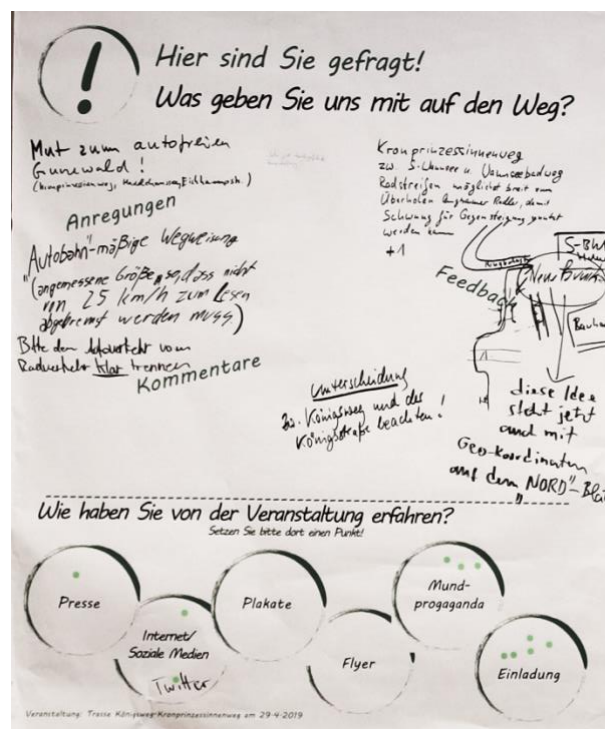 !
Hier sind Sie gefragt!
Was geben Sie uns mit auf den Weg?
Mut zum autofreien
Grunewald!
Anregungen
"Autobahn"-mäßige Wegweisung
(angemessene Größe, sodass nicht
von 25 km/h zum Lesen
abgebremst werden muss)
Bitte den Autoverkehr vom
Radverkehr klar trennen
Kommentare
Kronprinzessinnenweg
zw. S-Wannsee u. Wannseebadweg
Radstreifen möglichst breit zum
Überholen langsamer Radler, damit
Schwung für Gegensteigung genutzt
werden kann
+1
Feedback
Neue Brücke
diese Idee
steht jetzt
auch mit
Geo-Koordinaten
auf dem "NORD"-Bla
Unterscheidung
zw. Königsweg und der
Königstraße beachten!
Wie haben Sie von der Veranstaltung erfahren?
Setzen Sie bitte dort einen Punkt!
Presse
Internet/
Soziale Medien
Twitter
Plakate
Flyer
Mund-
progaganda
Einladung
Veranstaltung: Trasse Königsweg-Kronprinzessinnenweg am 29-4-2019